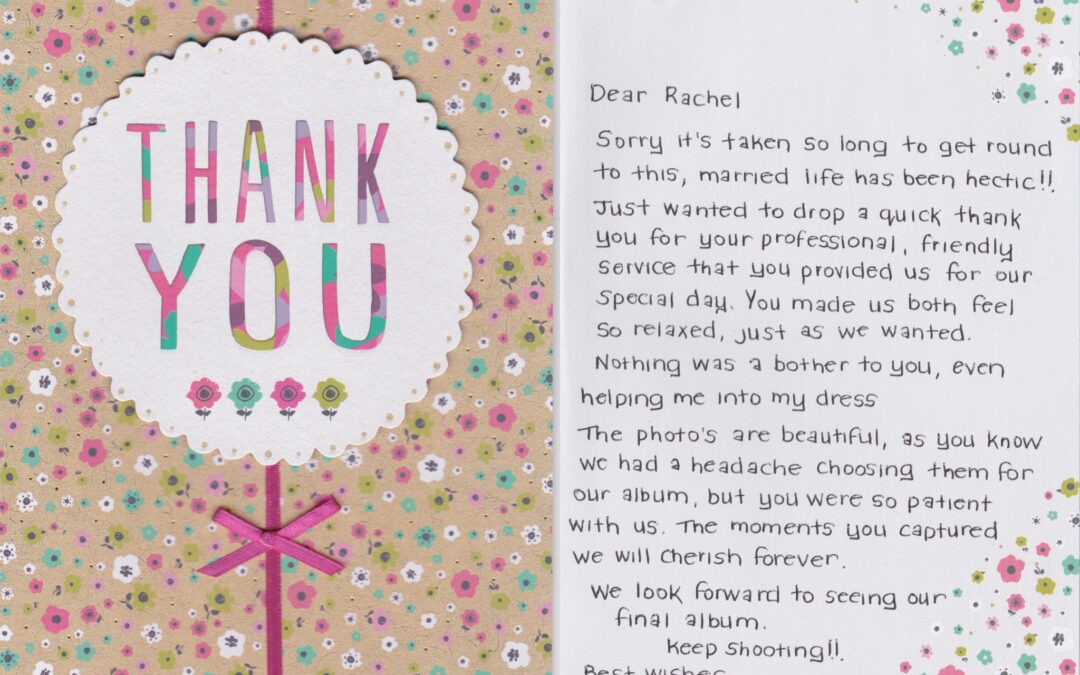 THANK
YOU
Dear Rachel
Sorry it's taken so long to get round
to this, married life has been hectic!!
Just wanted to drop a quick thank
you for your professional, friendly
service that you provided us for our
special day. You made us both feel
so relaxed, just as we wanted.
Nothing was a bother to you, even
helping me into my dress
The photo's are beautiful, as you know
we had a headache choosing them for
our album, but you were so patient
with us. The moments you captured
we will cherish forever.
We look forward to seeing our
final album.
keep shooting!!
Best wishes